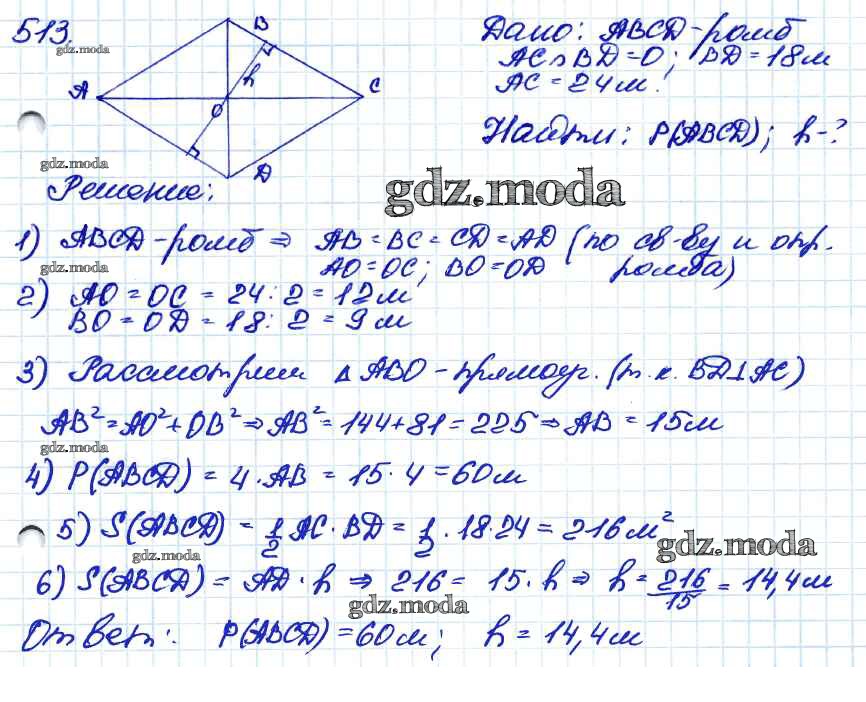 513.
gdz.moda
B
h
A
C
O
D
Дано: ABCD-ромб
AC∩BD=O; BD=18м
AC=24м.
Найти: P(ABCD); h-?
gdz.moda
gdz.moda
Решение:
1) ABCD-ромб ⇒ AB=BC=CD=AD (по св-ву и опр.
gdz.moda
AO=OC; BO=OD ромба)
2) AO=OC=24:2=12м
BO=OD=18:2=9м
3) Рассмотрим △ABO-прямоуг. (т.к. BD⊥AC)
AB²=AO²+OB²⇒AB²=144+81=225⇒AB=15м
gdz.moda
4) P(ABCD)=4·AB=15·4=60м
5) S(ABCD)=1/2 AC·BD=1/2·18·24=216м²
gdz.moda
gdz.moda
6) S(ABCD)=AD·h⇒216=15·h⇒h=216/15=14,4м
gdz.moda
Ответ: P(ABCD)=60м; h=14,4м